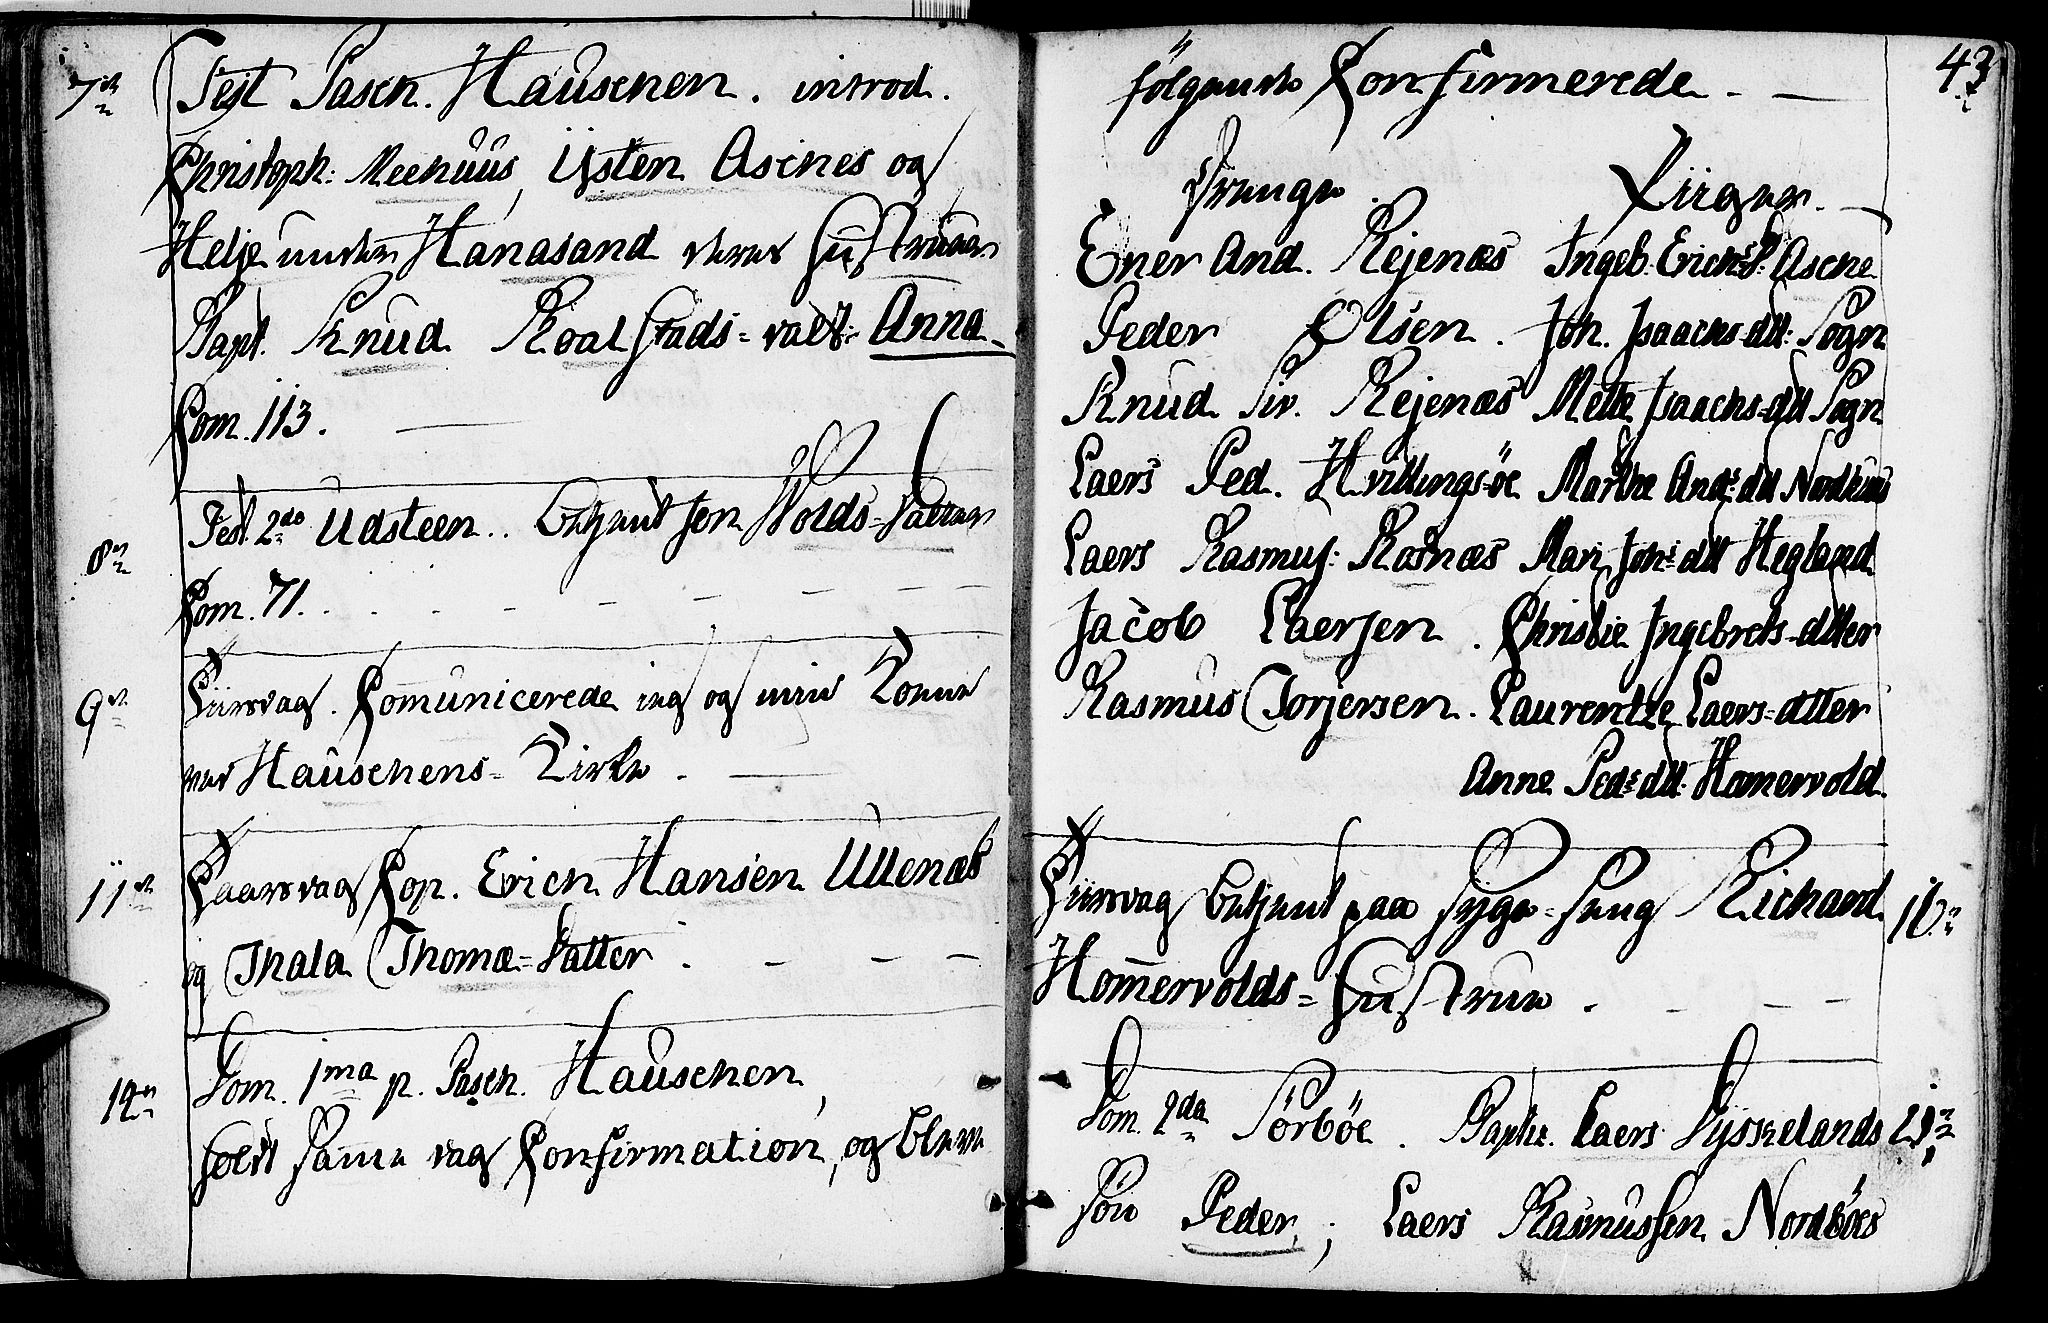 7de Fest Pasch. Hauschen. introd.
Christoph: Meehuus, Ysten Asches og
Helje under Hanasand deres Hustruer
Bapt. Knud Roalstads-datt: Anna
Com. 113.
8de Fest. 2do Udsteen.. betient Jon Wolds-datter
Com. 71.
9de Tiirsdag. Communicerede ieg og min Kone
ved Hauschens-Kirke.
11te Taarsdag Cop. Erich Hansen Ullenæs
og Thala Thomæ-datter.
12te Dom. 1ma p. Pasch. Hauschen,
holdt samme dag Confirmation, og bleve
43
følgende Confirmerede
Drenge. Piiger.
Ener And. Rejenæs Ingeb. Erichs D. Asche
Peder Olsen. Joh. Isaachs-dtt: Sogn
Knud Siv. Rejenæs Mette Isaachs-dtt Sogn
Laers Ped. Hvittingsöe Marthe Ands dtt Nordhuus
Laers Rasmus: Rosnæs Mari Johs dtt Hegland
Jacob Laersen. Christie Ingebrets-dtter
Rasmus Torjersen. Laurentze Laers-dtter
Anne Peds dtt. Homervold.
Tiirsdag betient paa Syge-Seng Richard 16de
Hommervolds-Hustrue.
Dom. 2da Sörböe. Baptz. Laers Sysskelands 21de
Sön Peder; Laers Rasmussen Nordböes